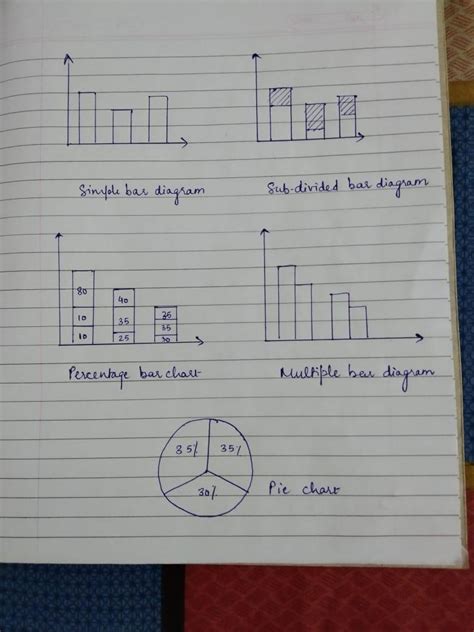 Simple bar diagram
Sub-divided bar diagram
80
10
10
40
35
25
35
35
30
Percentage bar chart
Multiple bar diagram
35%
35%
30%
Pie chart